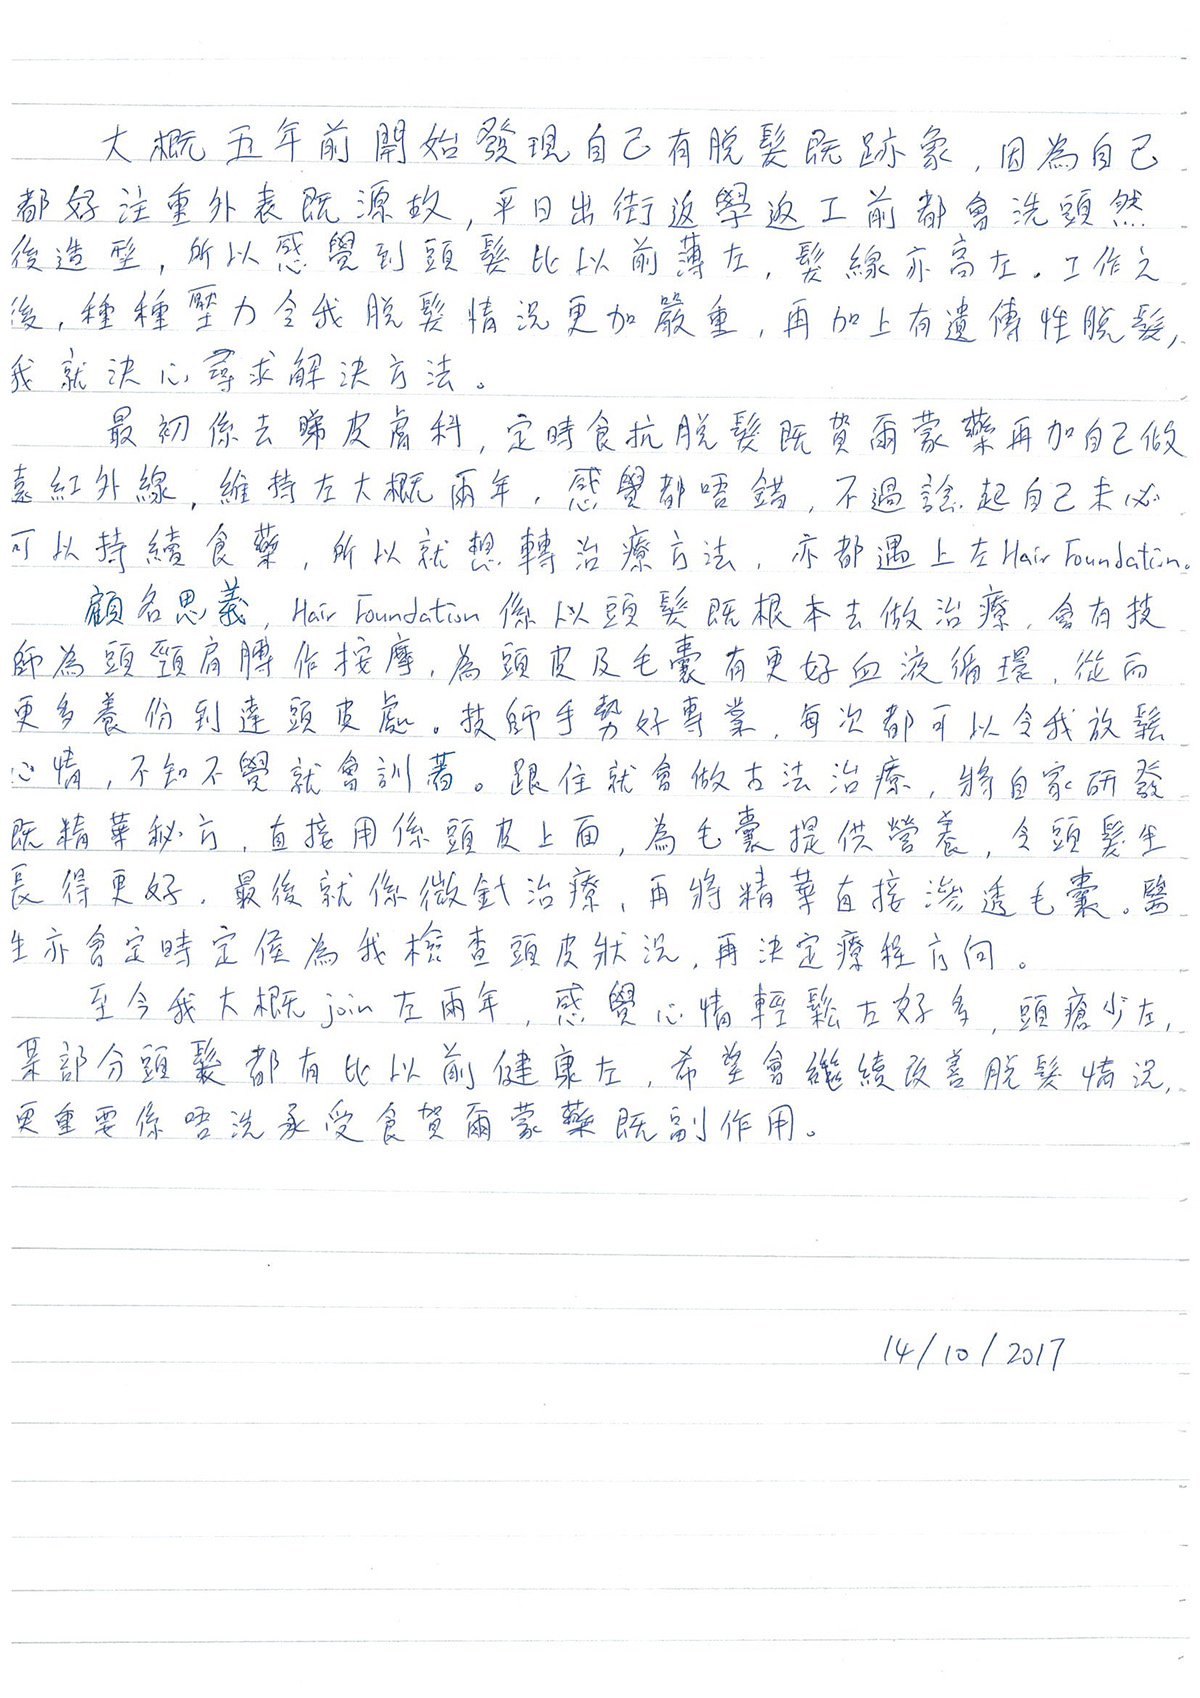 大概五年前開始發現自己有脫髮既跡象，因為自己
都好注重外表既源故，平日出街返學返工前都會洗頭然
後造型，所以感覺到頭髮比以前薄左，髮線亦高左。工作之
後，種種壓力令我脫髮情況更加嚴重，再加上有遺傳性脫髮，
我就決心尋求解決方法。
最初係去睇皮膚科，定時食抗脫髮既賀爾蒙藥再加自己做
遠紅外線，維持左大概兩年，感覺都唔錯，不過諗起自己未必
可以持續食藥，所以就想轉治療方法，亦都遇上左Hair Foundation。
顧名思義，Hair Foundation係以頭髮既根本去做治療，會有技
師為頭頸肩膊作按摩，為頭皮及毛囊有更好血液循環，從而
更多養份到達頭皮處。技師手勢好專業，每次都可以令我放鬆
心情，不知不覺就會訓著。跟住就會做古法治療，將自家研發
既精華秘方，直接用係頭皮上面，為毛囊提供營養，令頭髮生
長得更好。最後就係微針治療，再將精華直接滲透毛囊。醫
生亦會定時定侯為我檢查頭皮狀況，再決定療程方向。
至今我大概join左兩年，感覺心情輕鬆左好多，頭瘡少左，
某部分頭髮都有比以前健康左，希望會繼續改善脫髮情況，
更重要係唔洗承受食賀爾蒙藥既副作用。
14/10/2017